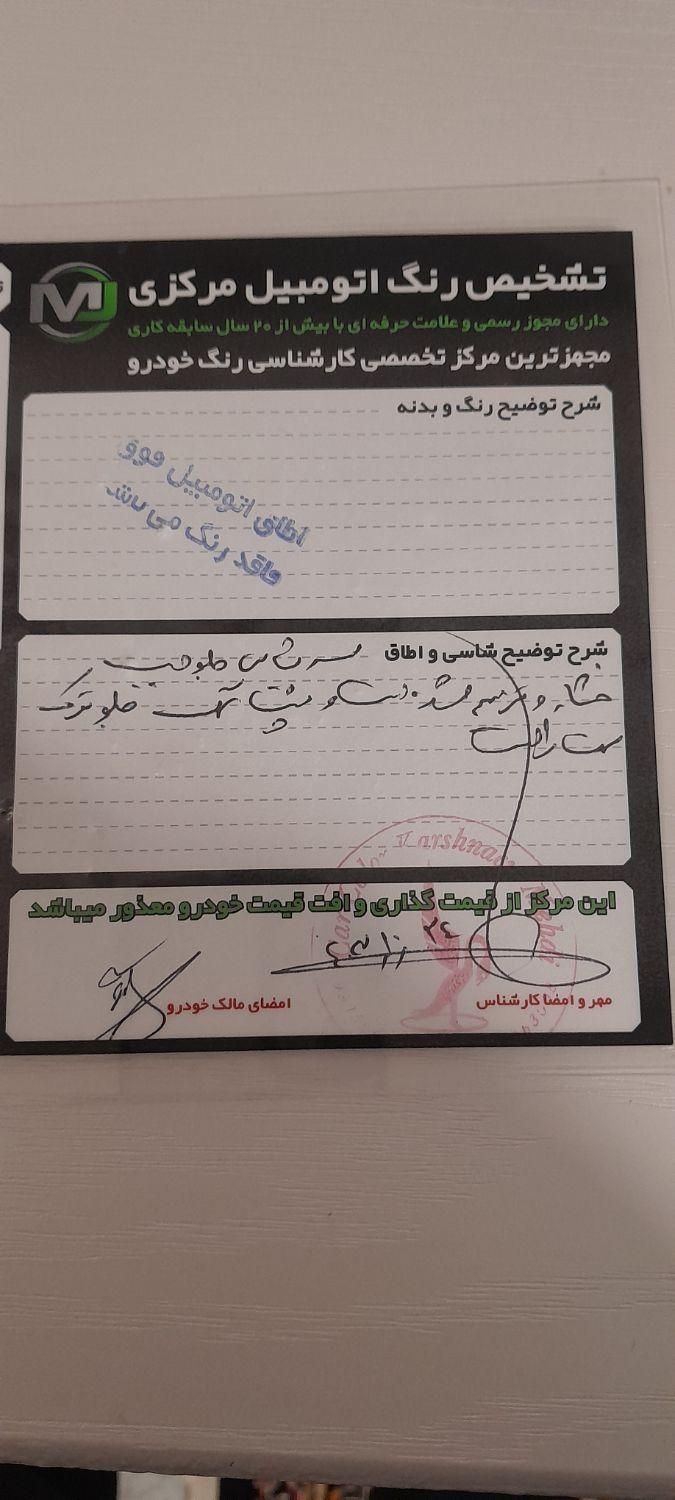 تشخیص رنگ اتومبیل مرکزی
دارای مجوز رسمی و علامت حرفه ای با بیش از ۲۰ سال سابقه کاری
مجهزترین مرکز تخصصی کارشناسی رنگ خودرو
شرح توضیح رنگ و بدنه
اطاق اتومبیل فوق
فاقد رنگ می باشد
شرح توضیح شاسی و اطاق سرشاسی جلو چپ
و ترمیم شده است و جلو ترک
این مرکز از قیمت گذاری و افت قیمت خودرو معذور میباشد
مهر و امضا کارشناس
امضای مالک خودرو